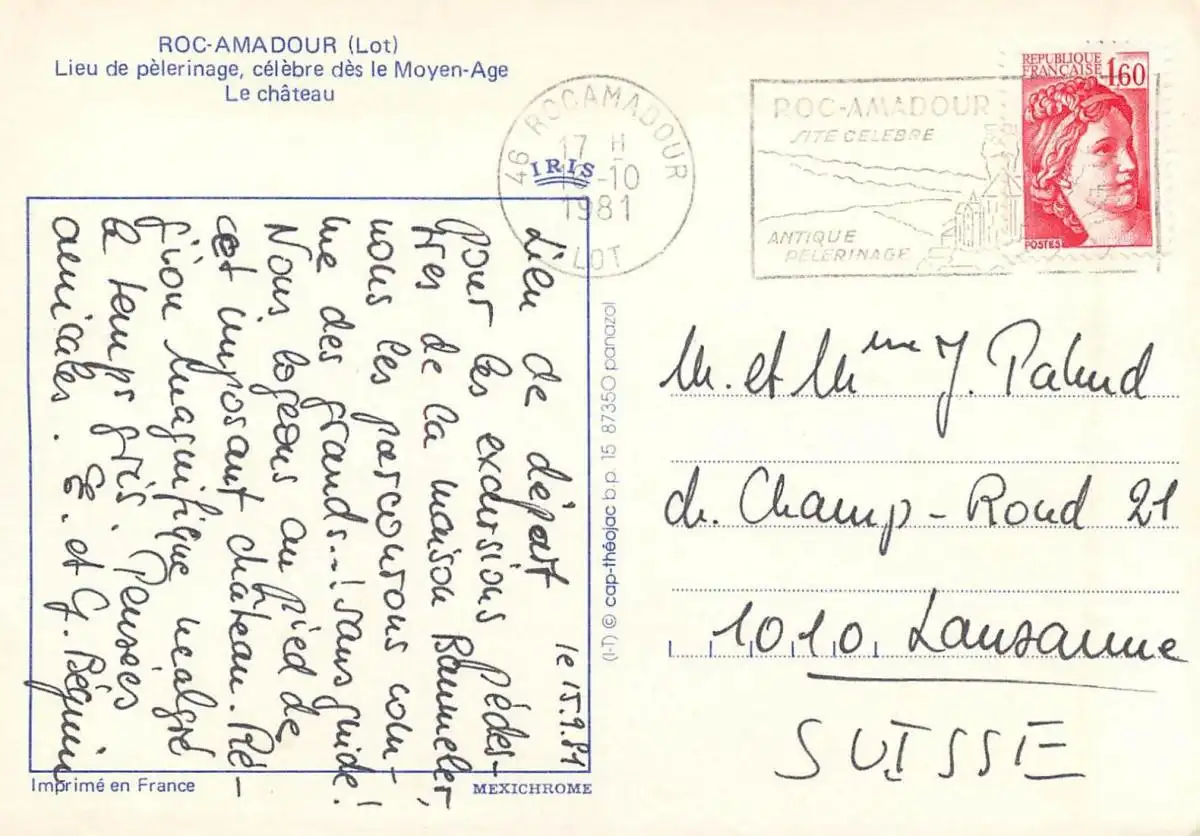 ROC-AMADOUR (Lot)
Lieu de pèlerinage, célèbre dès le Moyen-Age
Le château
46 ROCAMADOUR
17 H
-10
1981
LOT
IRIS
ROC-AMADOUR
SITE CELEBRE
ANTIQUE
PELERINAGE
REPUBLIQUE
FRANÇAISE
1,60
POSTES
le 15.9.81
Lieu de départ
pour les excursions pédes-
tres de la maison Baumeler,
nous les parcourons com-
me des grands...! sans guide!
Nous logeons au pied de
cet imposant château. Ré-
gion magnifique malgré
le temps gris. Pensées
amicales. E. et G. Béguin
(I-T) © cap-théojac b.p. 15 87350 panazol
M. et Mme J. Pahud
ch. Champ-Rond 21
1010 Lausanne
SUISSE
Imprimé en France
MEXICHROME